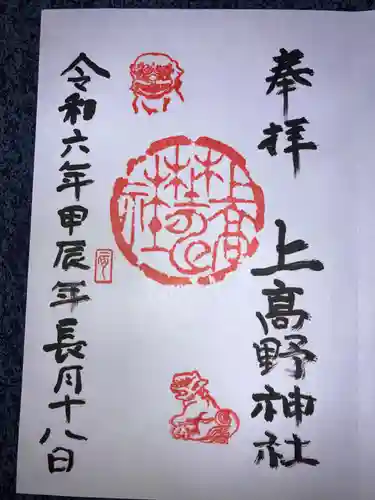 奉拝
上高野神社
令和六年甲辰年長月十八日